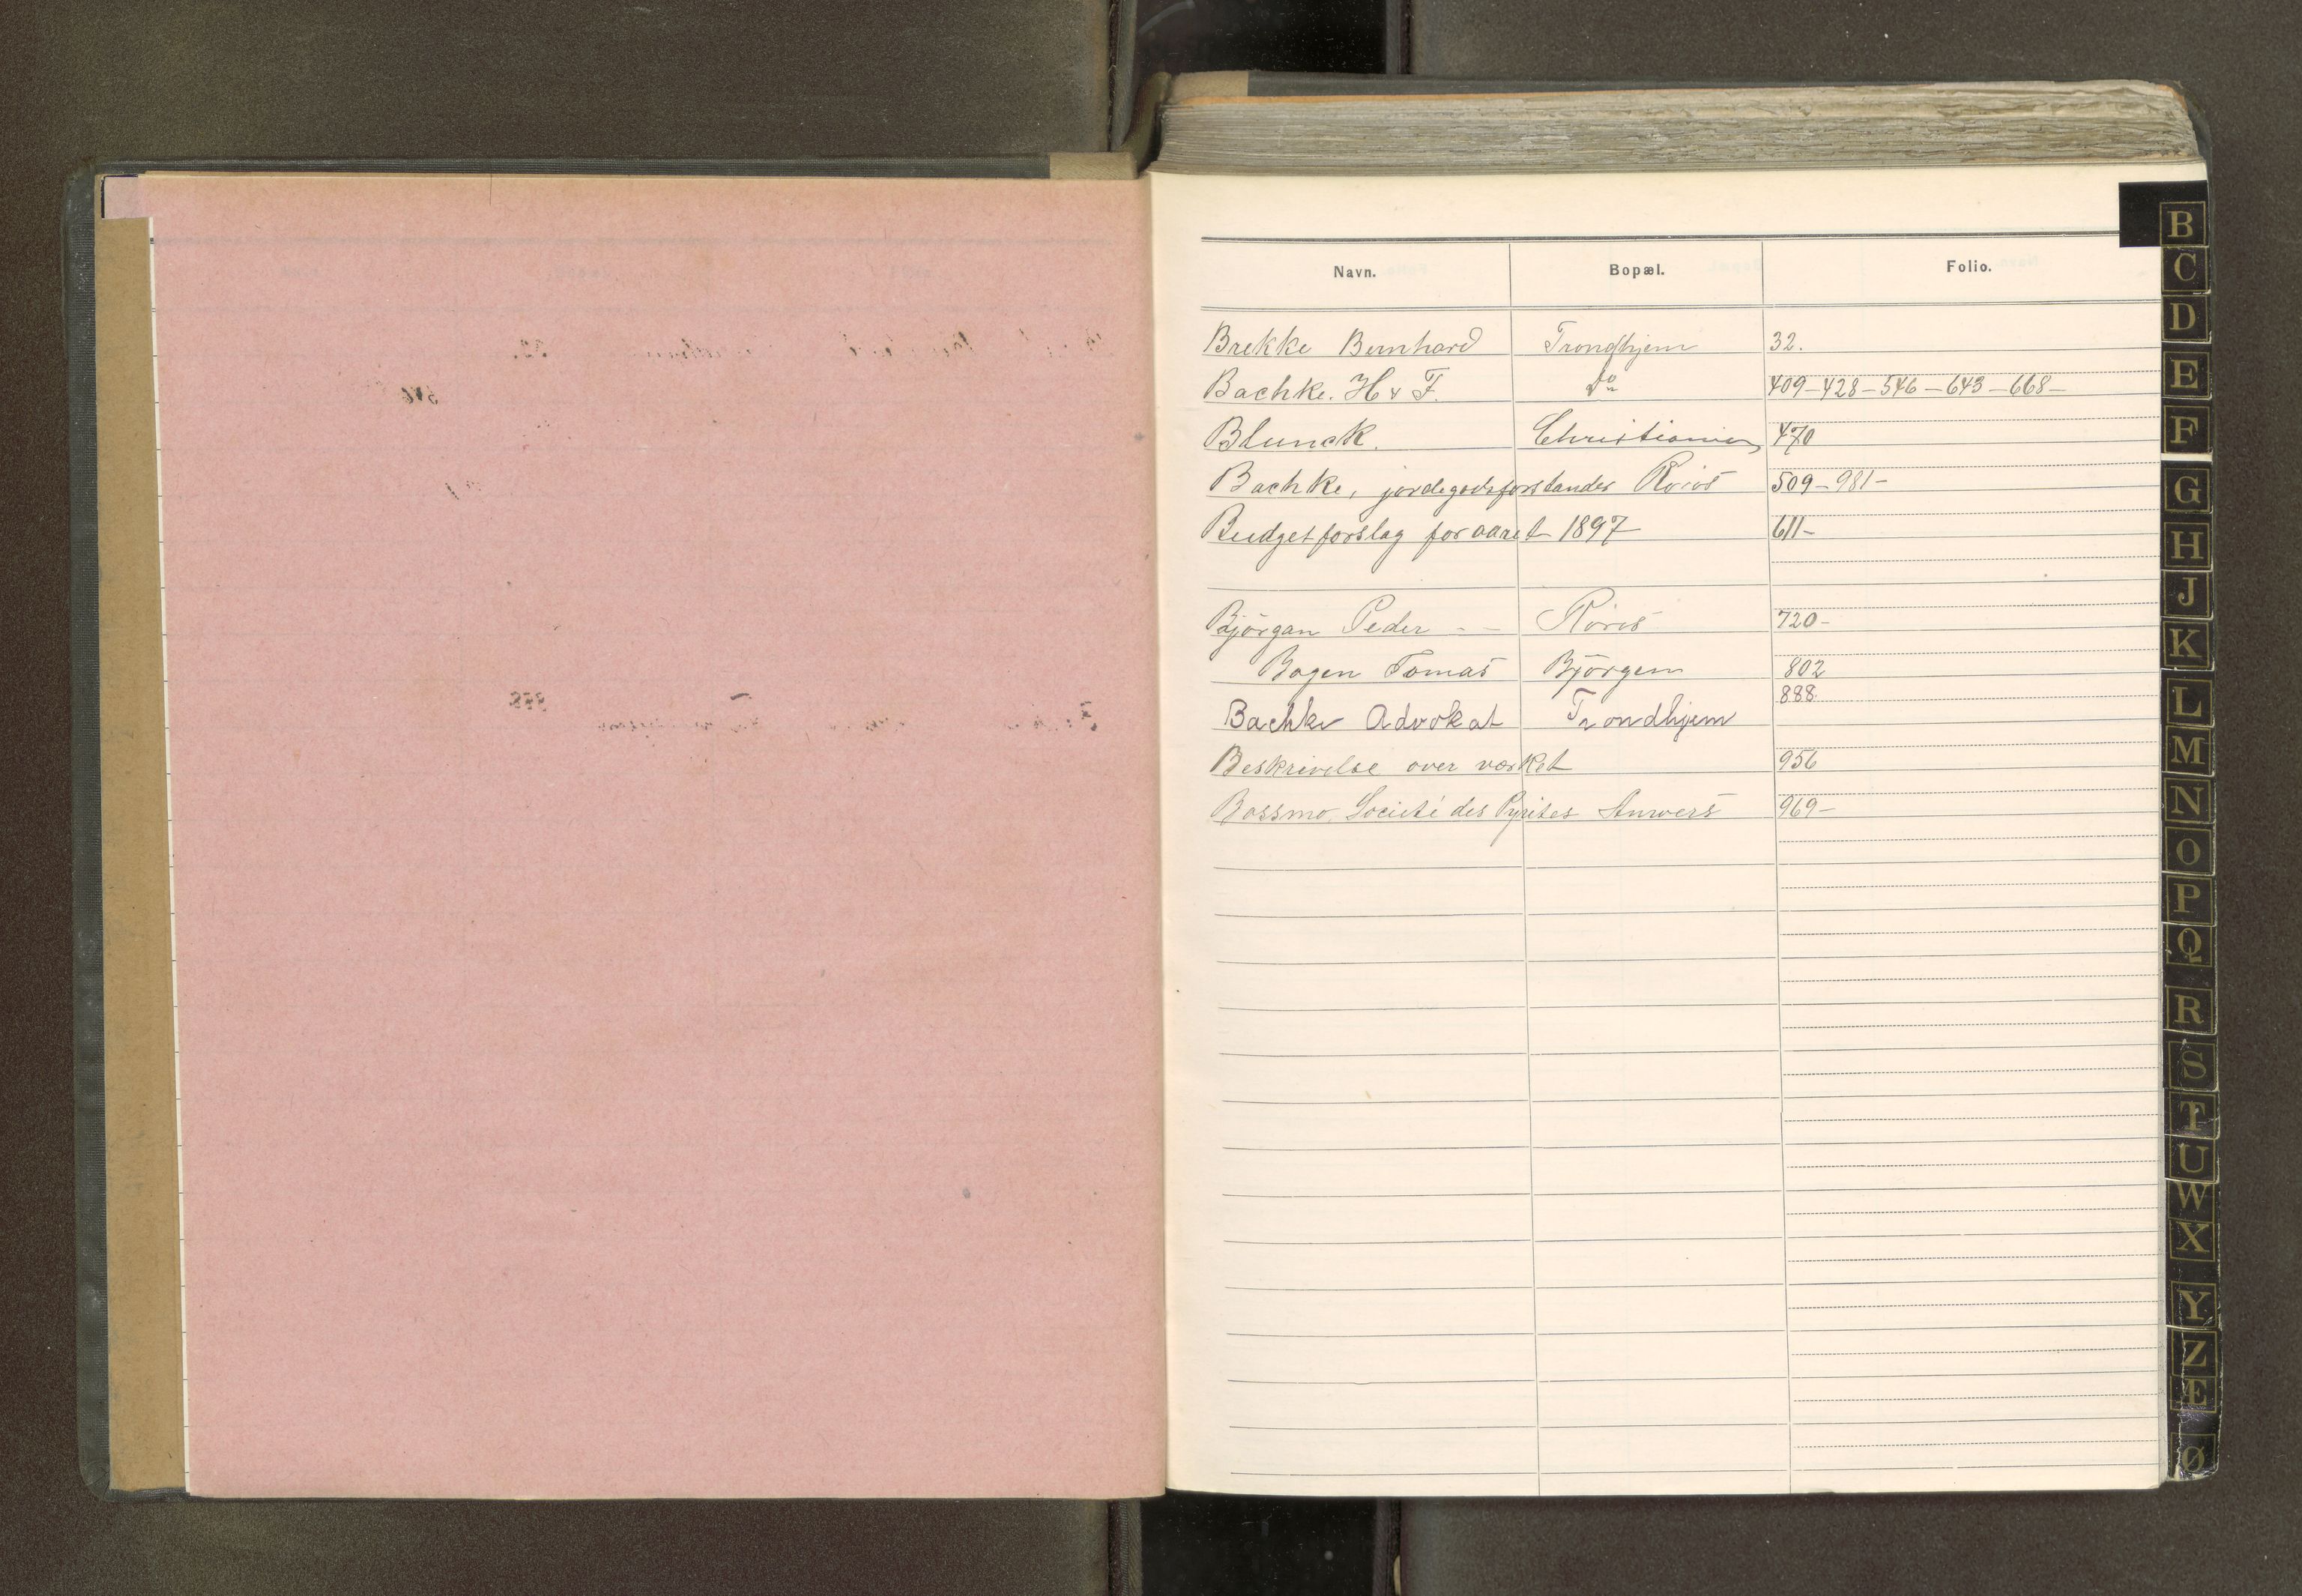 Navn. Bopæl. Folio.
Brekke Bernhard Trondhjem 32.
Bachke. H & F. Do 409-428-546-643-668-
Blunck. Christiania 470
Bachke, jordegodsforstander Röros 509-981-
Budgetforslag for aaret 1897 611-
Björgan Peder - - Röros 720-
Bogen Tomas Björgen 802
Bachke Advokat Trondhjem 888.
Beskrivelse over værket 956
Bossmo, Societé des Pyrites Anvers 969-
B
C
D
E
F
G
H
J
K
L
M
N
O
P
Q
R
S
T
U
W
X
Y
Z
Æ
Ø